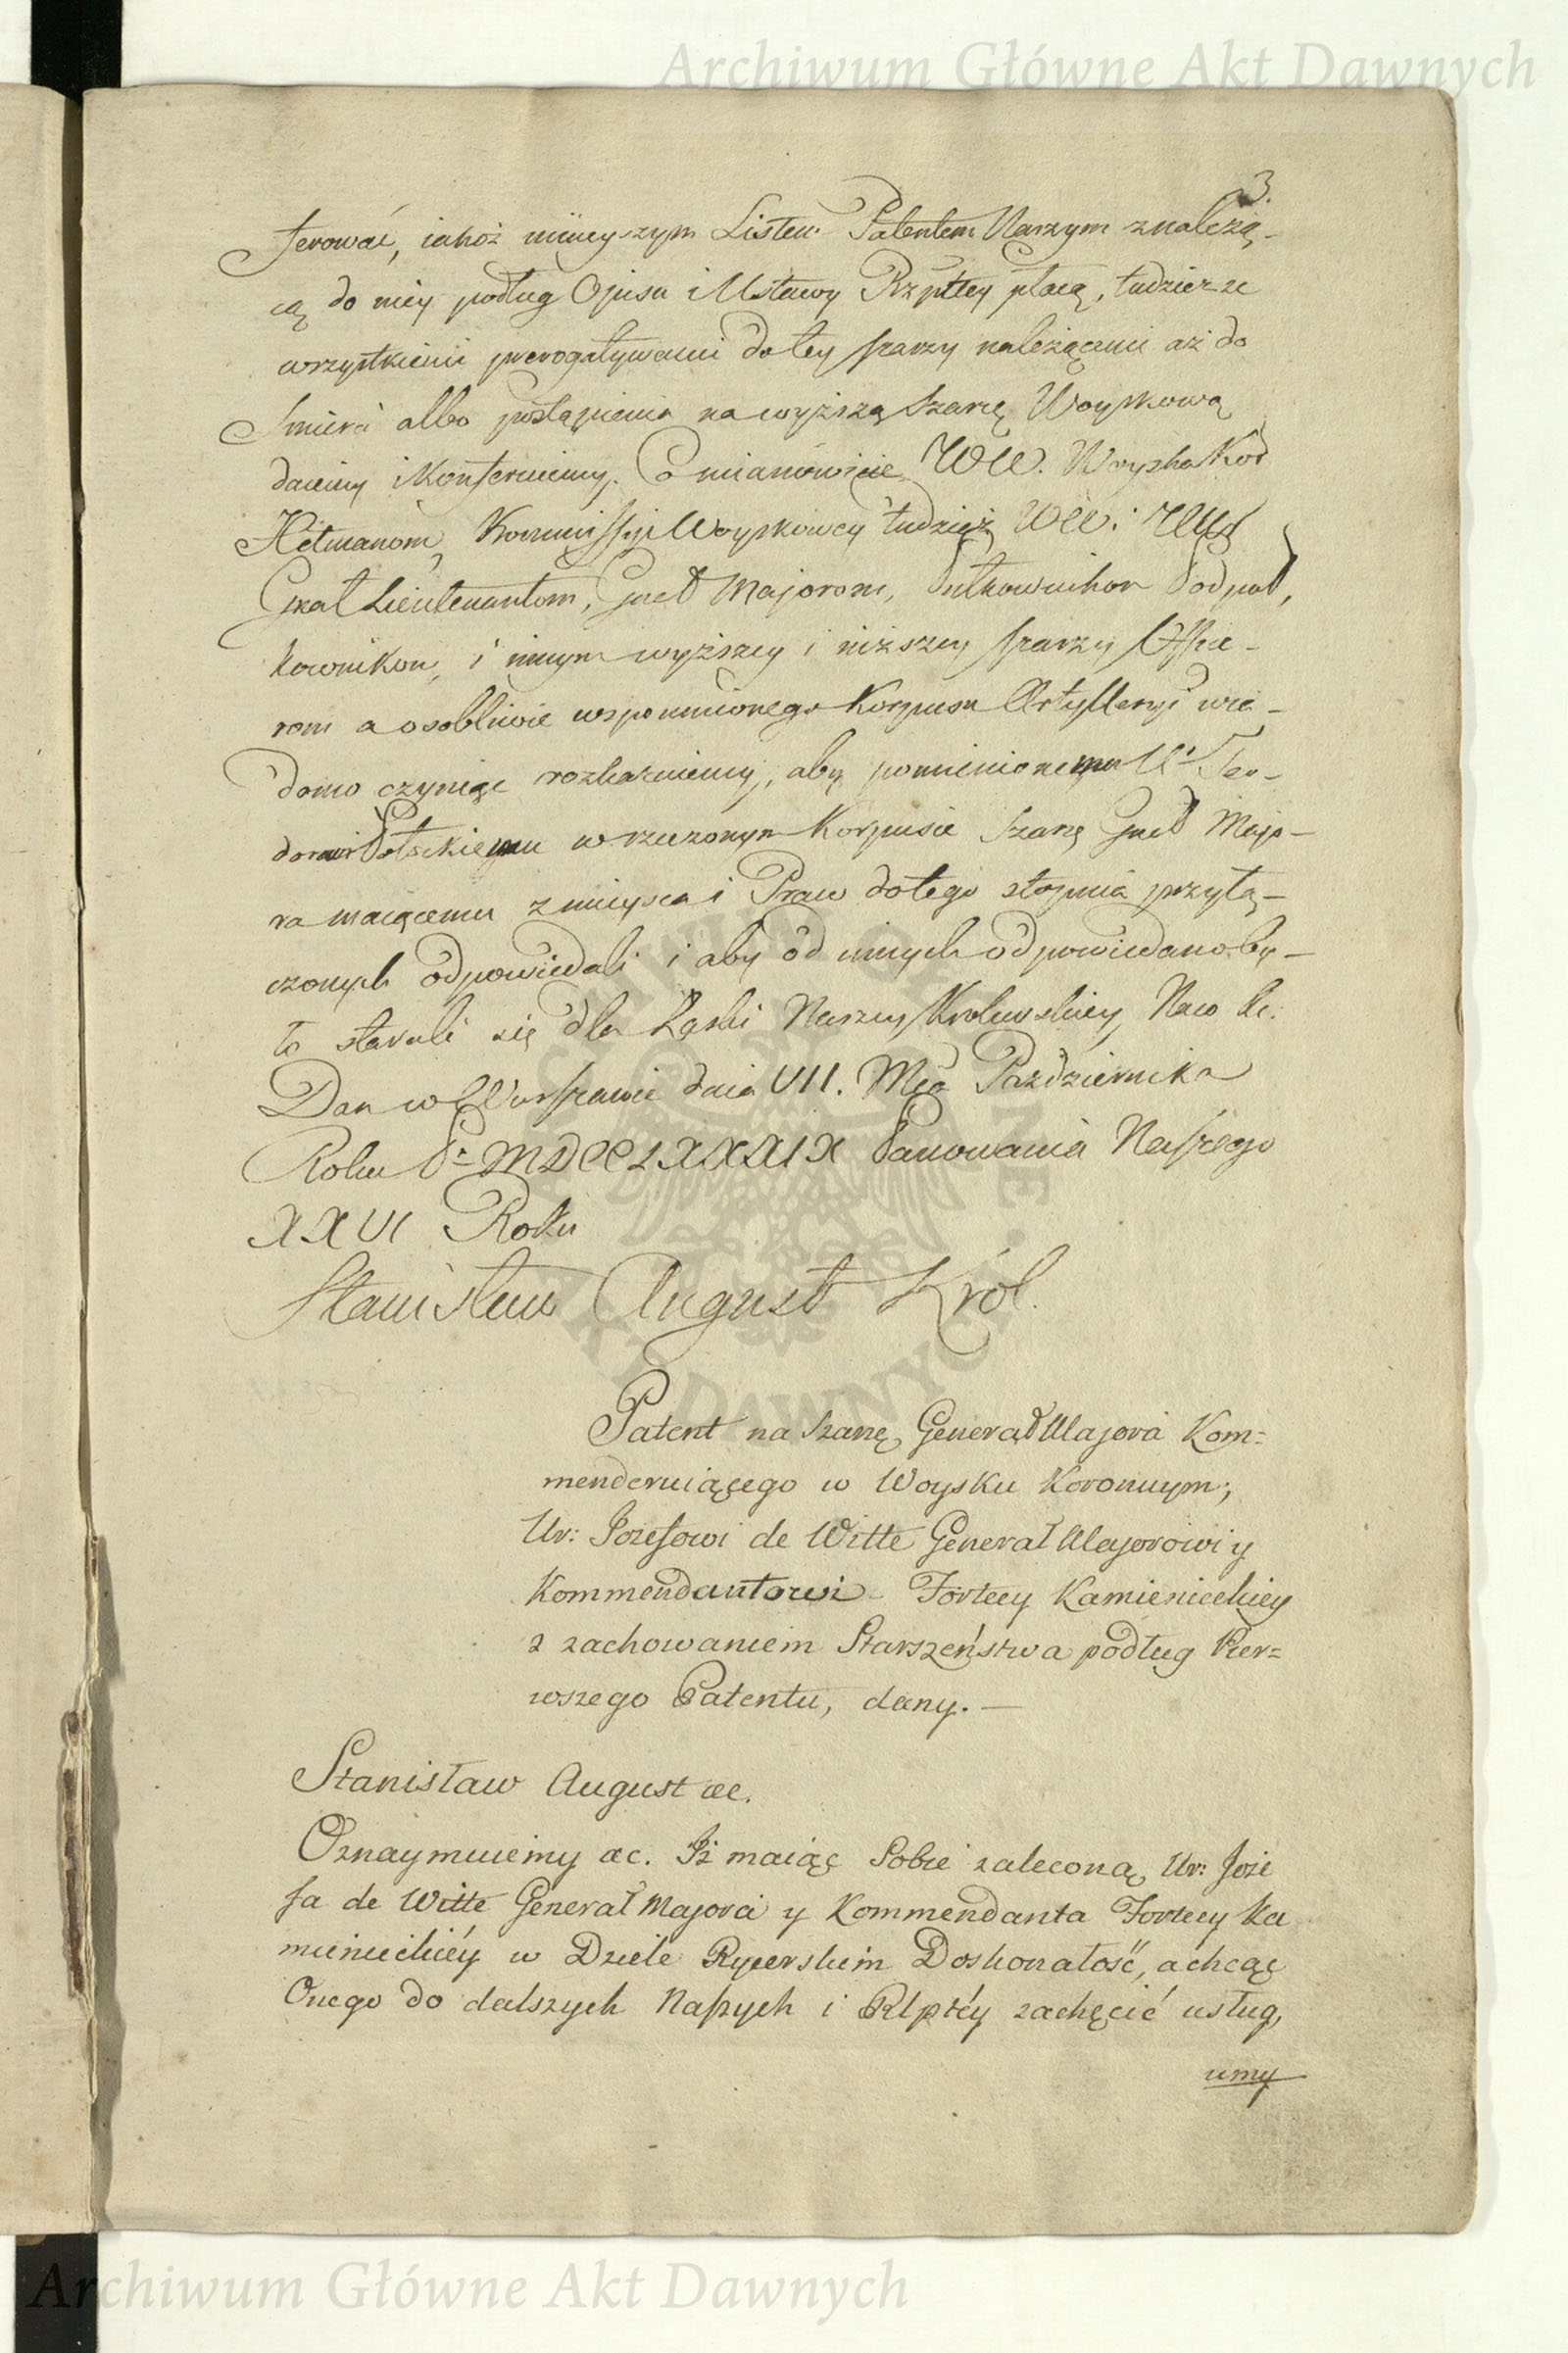 Archiwum Główne Akt Dawnych
3.
ferować, iakoż ninieyszym Listem Patentem Naszym z należą-
cą do niey podług Opisu i Ustawy Rzpltey płacą, tudzież ze
wszystkiemi prerogatywami do tey szarzy należącemi aż do
śmierci albo postąpienia na wyższą Szarżę Woyskową
daiemy i konferuiemy. Co mianowicie WW. Woyska Kor
Hetmanom, Kommissyi Woyskowey tudzież WW:
Gnał Lieutenantom, Gnał Majorom, Pułkownikom Podpuł,
kownikom, i innym wyższey i niższey szarzy Office-
rom a osobliwie wspomnionego Korpusu Artylleryi wia-
domo czyniąc rozkazuiemy, aby pomienionemu U: Teo-
dorowi Potockiemu w rzeczonym Korpusie Szarżę Gnał Majo-
ra maiącemu z mieysca i Praw do tego stopnia przyłą-
czonych odpowiedali i aby od innych odpowiedano by-
ło starali się dla Łaski Naszey Krolewskiey, Na co &c:
Dan w Warszawie dnia VII. Mca Pazdziernika
Roku P: MDCCLXXXIX Panowania Naszego
XXVI Roku
Stanisław August Król.
Patent na Szarżę Generał Majora Kom=
menderuiącego w Woysku Koronnym;
Ur: Jozefowi de Witte Generał Majorowi y
Kommendantowi Fortecy Kamienieckiey
z zachowaniem Starszeństwa podług Pier=
wszego Patentu, dany. —
Stanisław August &c.
Oznaymuiemy &c. Iż maiąc Sobie zaleconą Ur: Joze
fa de Witte Generał Majora y Kommendanta Fortecy Ka
mienieckiéy w Dziele Rycerskim Doskonałość, a chcąc
Onego do dalszych Naszych i Rlptéy zachęcić usług,
umy
Archiwum Główne Akt Dawnych